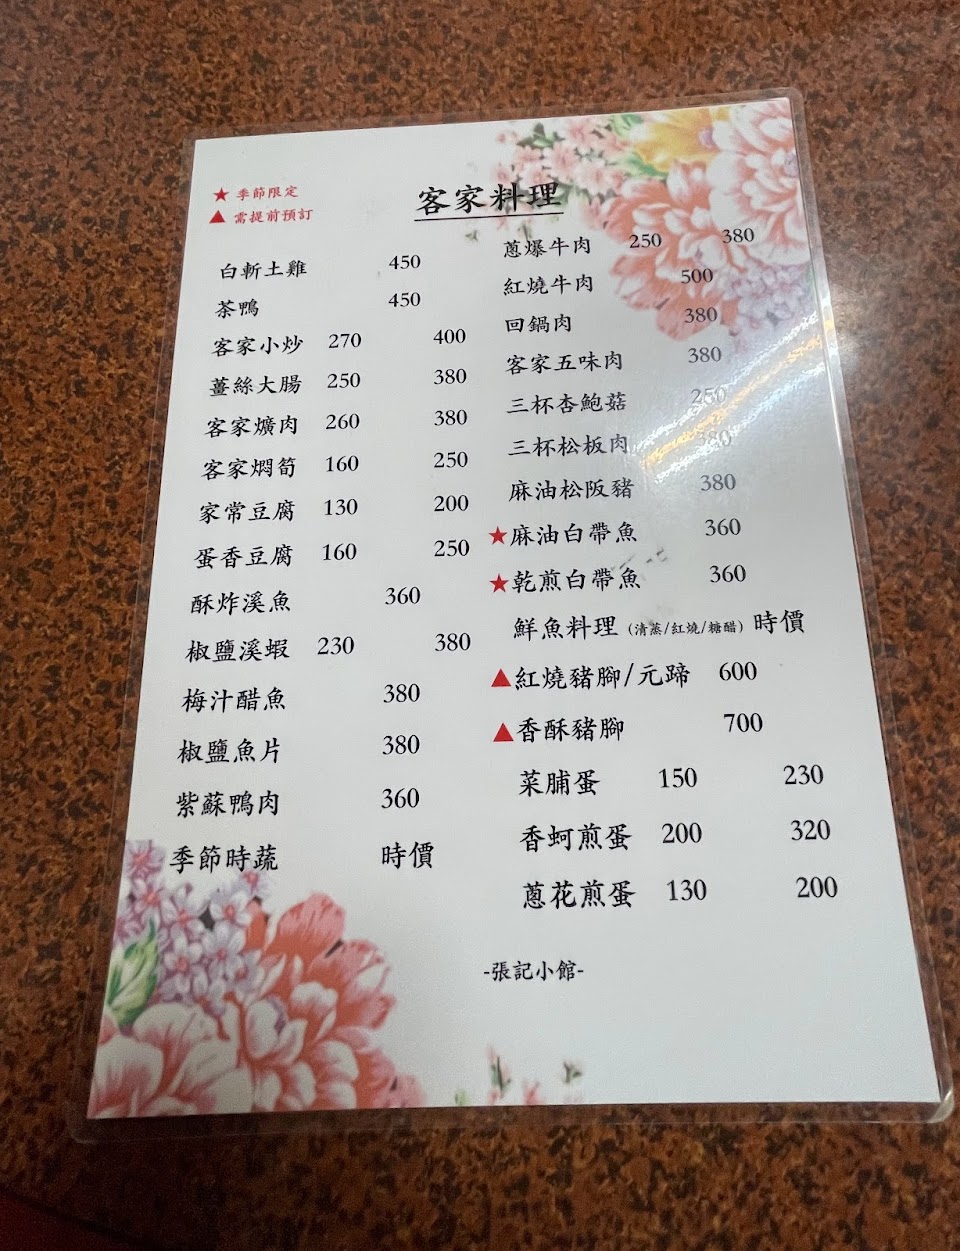 ★ 季節限定
▲ 需提前預訂
客家料理
白斬土雞 450
茶鴨 450
客家小炒 270 400
薑絲大腸 250 380
客家爌肉 260 380
客家燜筍 160 250
家常豆腐 130 200
蛋香豆腐 160 250
酥炸溪魚 360
椒鹽溪蝦 230 380
梅汁醋魚 380
椒鹽魚片 380
紫蘇鴨肉 360
季節時蔬 時價
蔥爆牛肉 250 380
紅燒牛肉 500
回鍋肉 380
客家五味肉 380
三杯杏鮑菇 250
三杯松板肉 380
麻油松阪豬 380
★麻油白帶魚 360
★乾煎白帶魚 360
鮮魚料理 (清蒸/紅燒/糖醋) 時價
▲紅燒豬腳/元蹄 600
▲香酥豬腳 700
菜脯蛋 150 230
香蚵煎蛋 200 320
蔥花煎蛋 130 200
-張記小館-